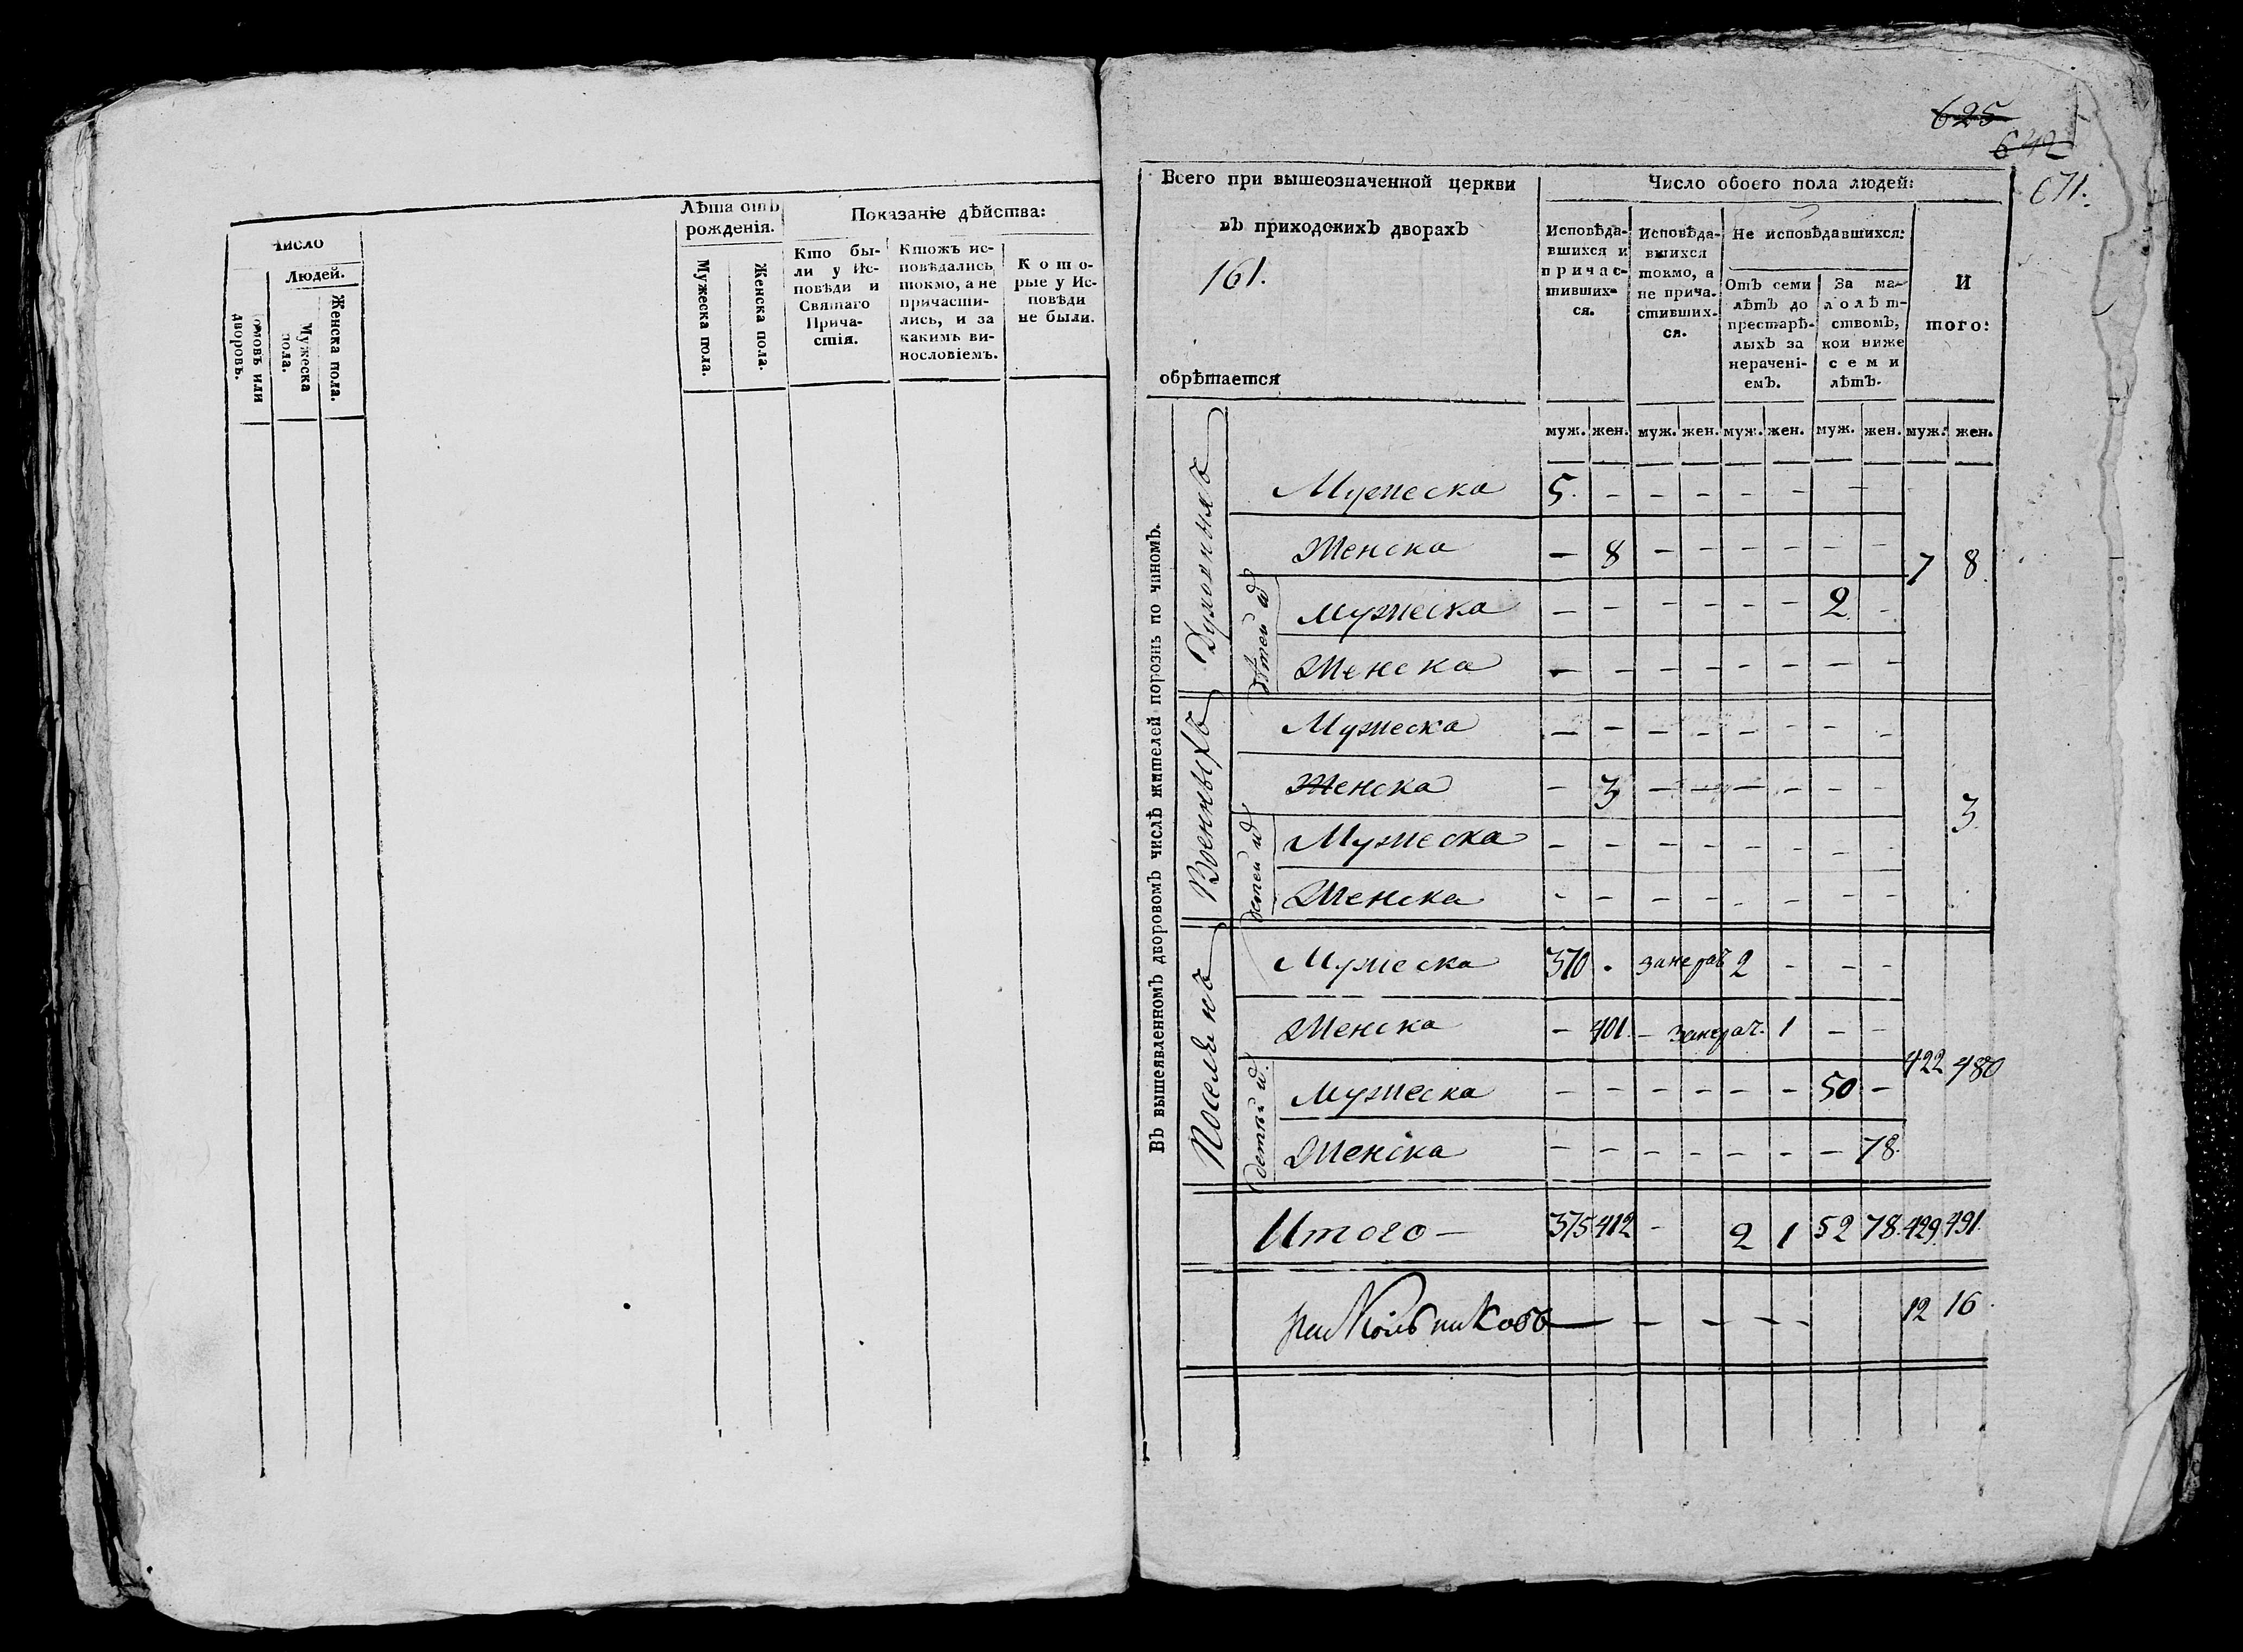 число
Людей.
домовъ или дворовъ.
Мужеска пола.
Женска пола.
Лѣта отъ рожденія.
Мужеска пола.
Женска пола.
Показаніе дѣйства:
Кто бы-
ли у Ис-
повѣди и
Святаго
Прича-
стія.
Ктожъ ис-
повѣдались
токмо, а не
причасти-
лись, и за
какимъ ви-
нословіемъ.
Кото-
рые у Ис-
повѣди
не были.
625
642
671.
Всего при вышеозначенной церкви
въ приходскихъ дворахъ
161.
обрѣтается
Число обоего пола людей:
Исповѣда-
вшихся и
причас-
тивших-
ся.
Исповѣда-
вшихся
токмо, а
не прича-
стивших-
ся.
Не исповѣдавшихся:
Отъ семи
лѣтъ до
престарѣ-
лыхъ за
нерачені-
емъ.
За ма-
лолѣт-
ствомъ,
кои ниже
семи
лѣтъ.
И
того:
муж. жен. муж. жен. муж. жен. муж. жен. муж. жен.
Въ вышеявленномъ дворовомъ числѣ жителей порознь по чиномъ.
Духовныхъ
Мужеска 5. - - - - - -
Женска - 8 - - - - - - 7 8.
дѣтей ихъ
Мужеска - - - - - - 2. -
Женска - - - - - - - -
Военныхъ
Мужеска - - - - - - - -
Женска - 3 - - - - - - 3.
детей ихъ
Мужеска - - - - - - - -
Женска - - - - - - - -
Поселянъ
Мужеска 370 . занерач 2 - - -
Женска - 401. - занерач. 1 - - 422 480
детей ихъ
Мужеска - - - - - - 50 -
Женска - - - - - - - 78.
Итого - 375 412 - 2 1 52 78. 429. 491.
раскольниковъ - - - - - 12 16.